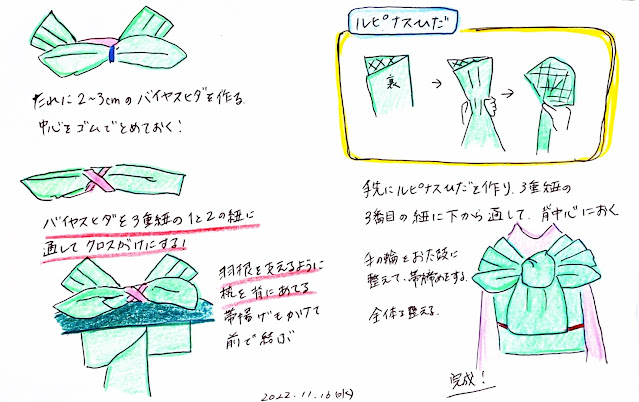 たれに2〜3cmのバイヤスヒダを作る
中心をゴムでとめておく!
バイヤスヒダを3重紐の1と2の紐に
通してクロスがけにする!
羽根を支えるように
枕を背にあてる
帯揚げもかけて
前で結ぶ
ルピナスひだ
裏
手先にルピナスひだを作り、3重紐の
3番目の紐に下から通して、背中心におく
手の輪をお太鼓に
整えて、帯締めをする。
全体を整える。
完成!
2022.11.16